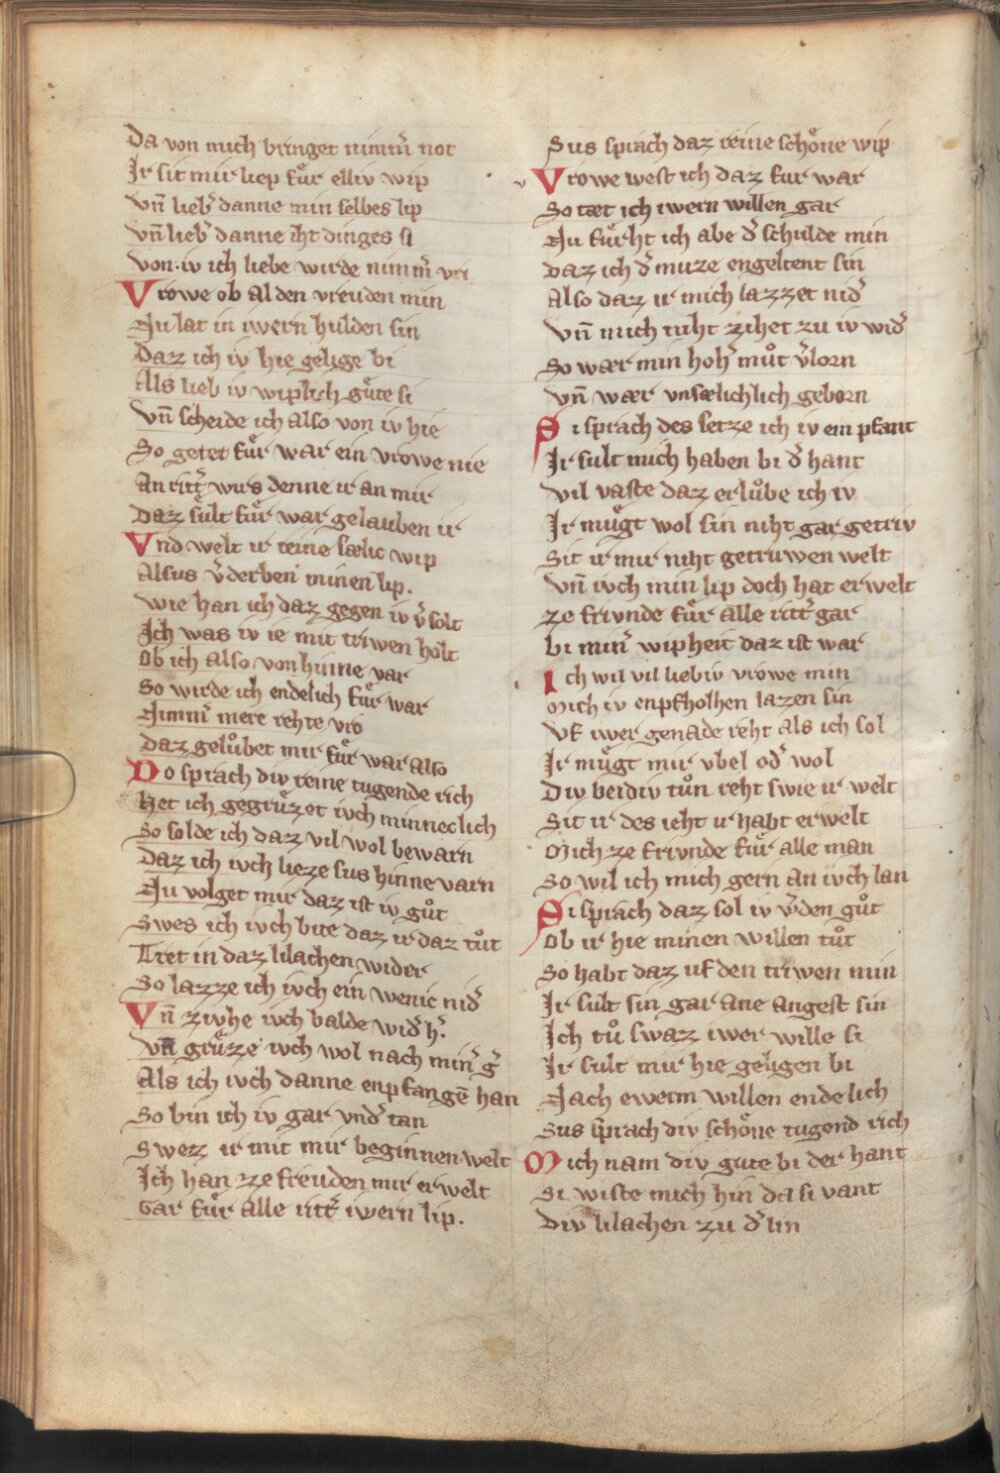 Da von mich bringet nimm̄ not
Ir sit mir liep fuͤr elliv wip
Vn̄ lieb͛ danne min selbes lip
Vn̄ lieb͛ danne iht dinges si
Von iv ich liebe wirde nimm͛ vri
Vrowe ob al den vreuden min
Nu lat in iwern hulden sin
Daz ich iv hie gelige bi
Als lieb iv wiplich guͤte si
Vn̄ scheide ich also von iv hie
So getet fuͤr war ein vrowe nie
An ritt͛ wirs denne ir an mir
Daz suͤlt fuͤr war gelauben ir
Vnd welt ir reine sælic wip
Alsus v͛derben minen lip.
Wie han ich daz gegen iv v͛solt
Ich was iv ie mit triwen holt
Ob ich also von hinne var
So wirde ich endelich fuͤr war
Nimm͛ mere rehte vro
Daz geluͦbet mir fuͤr war also
Do sprach div reine tugende rich
Het ich gegruͤzet ivch minneclich
So solde ich daz vil wol bewarn
Daz ich ivch lieze sus hinne varn
Nu volget mir daz ist iv guͦt
Swes ich ivch bite daz ir daz tuͦt
Tret in daz lilachen wider
So lazze ich ivch ein wenic nid͛
Vn̄ zivhe ivch balde wid͛ h͛.
Vn̄ gruͤze ivch wol nach min͛ g͛
Als ich ivch danne enpfangē han
So bin ich iv gar vnd͛tan
Swez ir mit mir beginnen welt
Ich han ze freuden mir erwelt
Gar fuͤr alle ritt͛ iwern lip.
Sus sprach daz reine schoͤne wip
Vrowe west ich daz fur war
So tæt ich iwern willen gar
Nu fuͤrht ich abe d͛ schulde min
Daz ich d͛ muze engeltent sin
Also daz ir mich lazzet nid͛
Vn̄ mich niht zihet zu iv wid͛
So wær min hoh͛ muͦt v͛lorn
Vn̄ wær vnsælichlich geborn
Si sprach des setze ich iv ein pfant
Ir sult mich haben bi d͛ hant
Vil vaste daz erluͦbe ich iv
Ir muͤgt wol sin niht gar getriv
Sit ir mir niht getruwen welt
Vn̄ ivch min lip doch hat erwelt
ze frivnde fuͤr alle ritt͛ gar
bi min͛ wipheit daz ist war
Ich wil vil liebiv vrowe min
Mich iv enpfholhen lazen sin
Vf iwer genade reht als ich sol
Ir muͤgt mir vbel od͛ wol
Div beidiv tuͦn reht swie ir welt
Sit ir des icht ir habt erwelt
Mich ze frivnde fuͤr alle man
So wil ich mich gern an ivch lan
Si sprach daz sol iv w͛den guͦt
Ob ir hie minen willen tuͦt
So habt daz uf den triwen min
Ir sult sin gar ane angest sin
Ich tuͦ swaz iwer wille si
Ir sult mir hie geligen bi
Nach ewerm willen endelich
Sus sprach div schoͤne tugend rich
Mich nam div gute bi der hant
Si wiste mich hin da si vant
Div lilachen zu d͛ lin